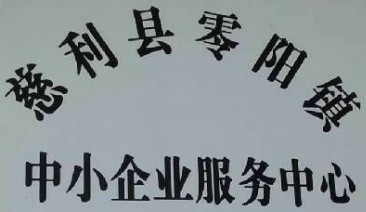 慈利县零阳镇
中小企业服务中心